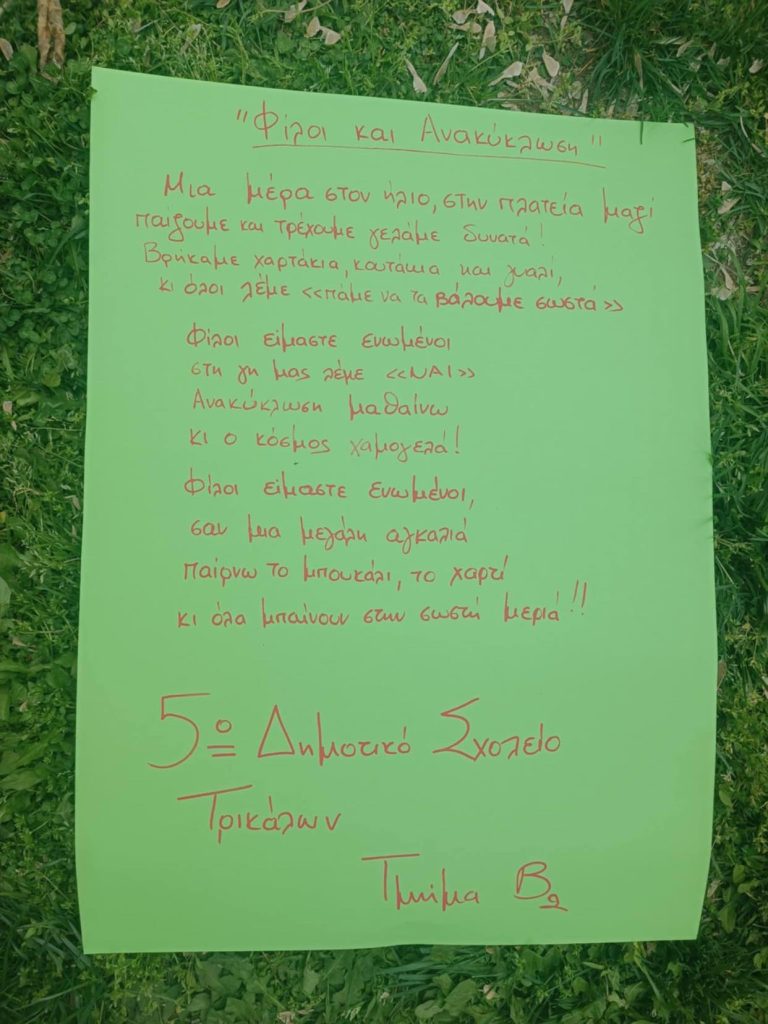 "Φίλοι και Ανακύκλωση"
Μια μέρα στον ήλιο, στην πλατεία μαζί
παίζουμε και τρέχουμε γελάμε δυνατά!
Βρήκαμε χαρτάκια, κουτάκια και γυαλί,
κι όλοι λέμε <<πάμε να τα βάλουμε σωστά>>
Φίλοι είμαστε ενωμένοι
στη γη μας λέμε <<ΝΑΙ>>
Ανακύκλωση μαθαίνω
κι ο κόσμος χαμογελά!
Φίλοι είμαστε ενωμένοι,
σαν μια μεγάλη αγκαλιά
παίρνω το μπουκάλι, το χαρτί
κι όλα μπαίνουν στην σωστή μεριά!!
5ο Δημοτικό Σχολείο
Τρικάλων
Τμήμα Β2